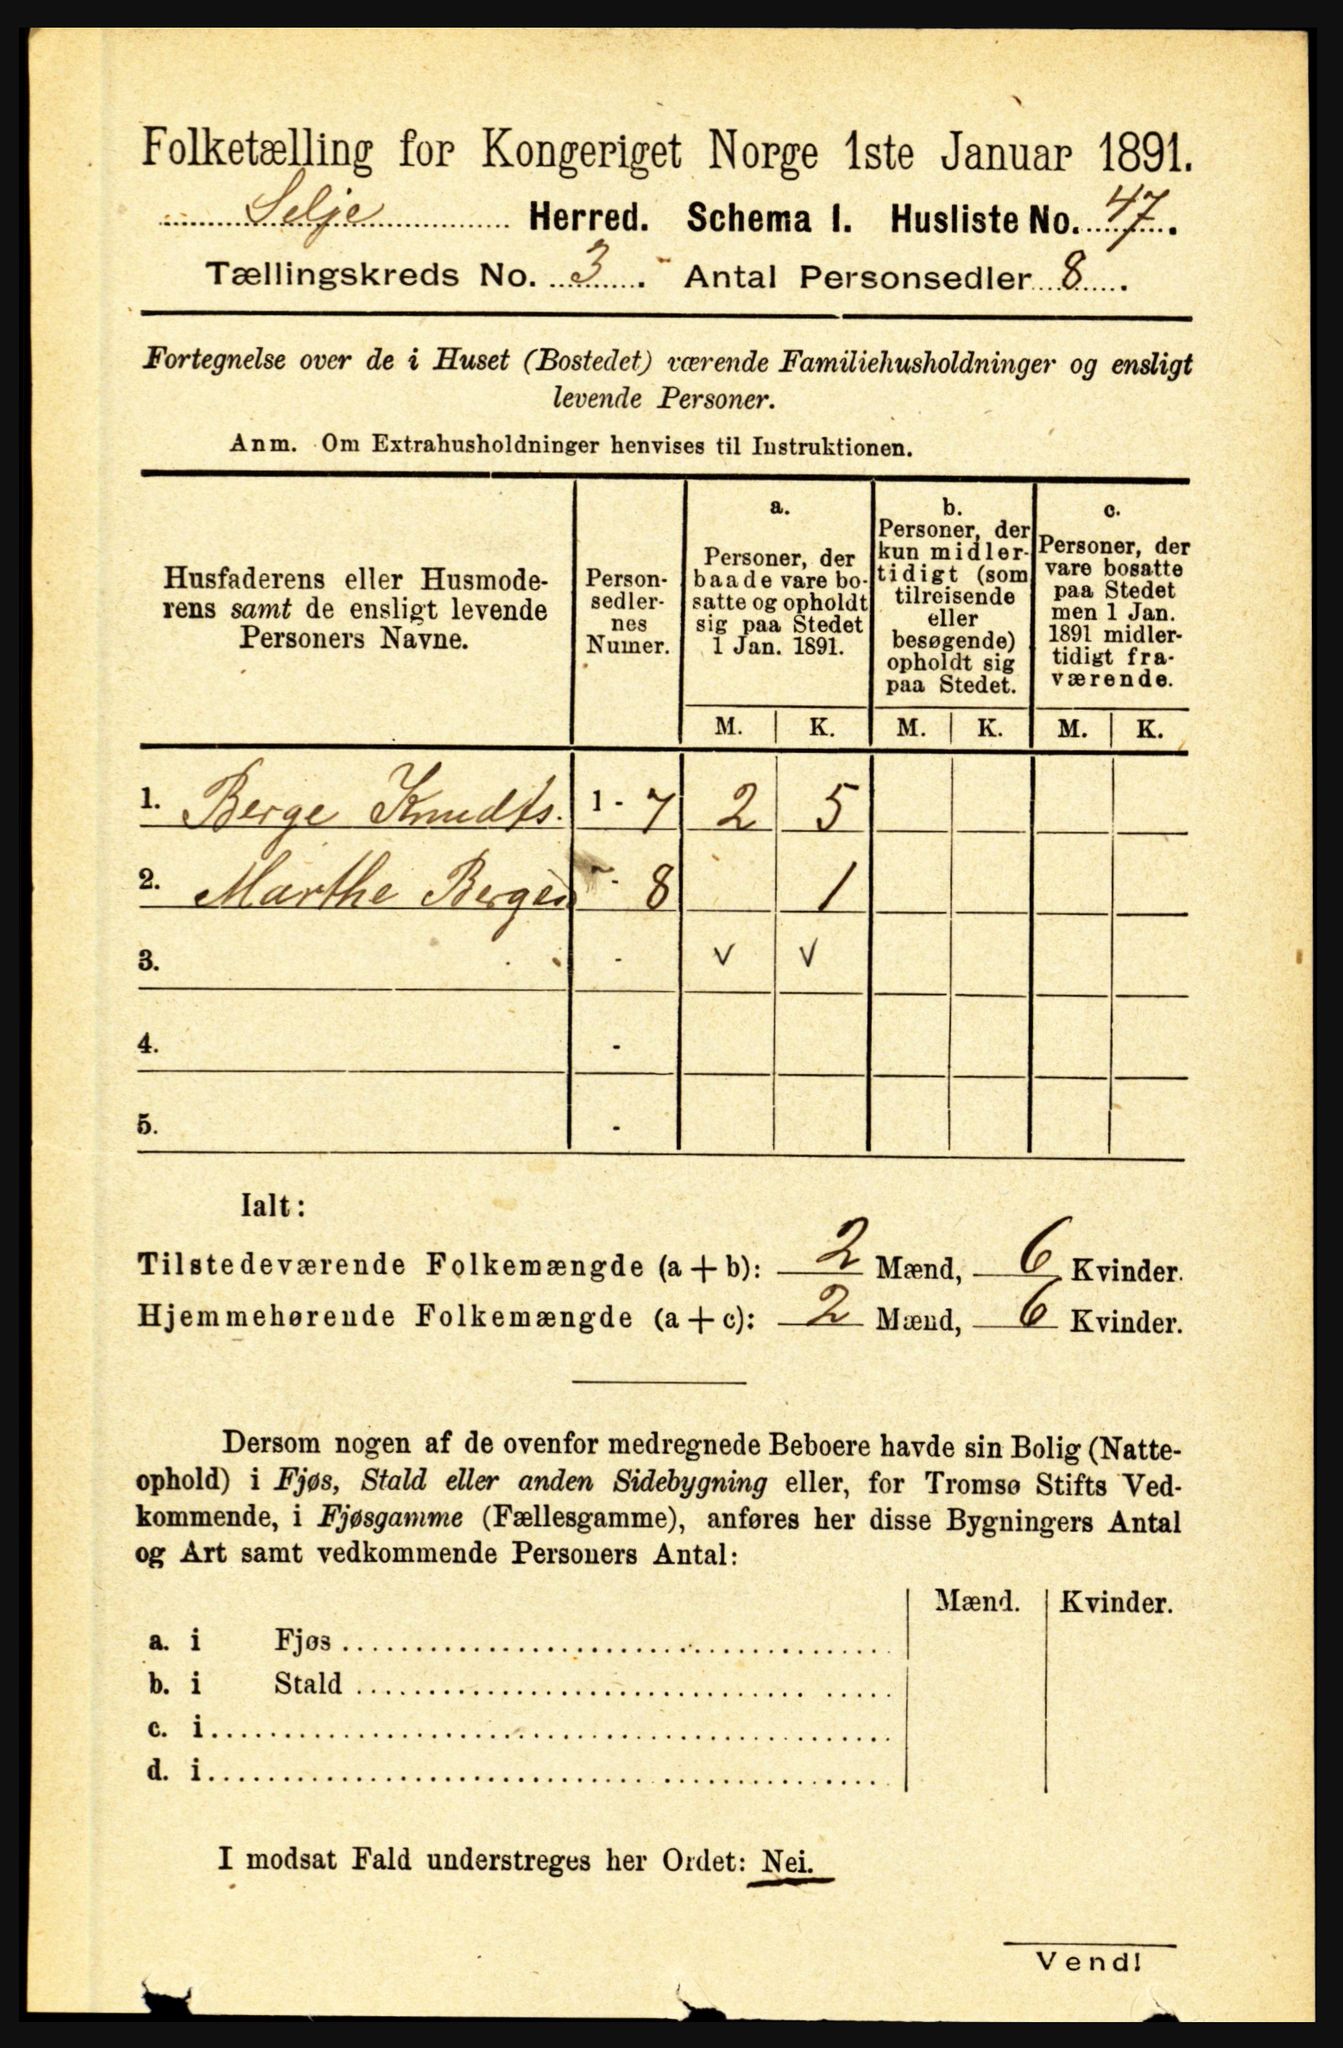 Folketælling for Kongeriget Norge 1ste Januar 1891.
Selje Herred. Schema I. Husliste No. 47.
Tællingskreds No. 3. Antal Personsedler 8.
Fortegnelse over de i Huset (Bostedet) værende Familiehusholdninger og ensligt
levende Personer.
Anm. Om Extrahusholdninger henvises til Instruktionen.
Husfaderens eller Husmode-
rens samt de ensligt levende
Personers Navne.
Person-
sedler-
nes
Numer.
a.
Personer, der
baade vare bo-
satte og opholdt
sig paa Stedet
1 Jan. 1891.
b.
Personer, der
kun midler-
tidigt (som
tilreisende
eller
besøgende)
opholdt sig
paa Stedet.
c.
Personer, der
vare bosatte
paa Stedet
men 1 Jan.
1891 midler-
tidigt fra-
værende.
M. K. M. K. M. K.
1. Berge Knudts. 1 - 7 2 5
2. Marthe Bergesd - 8 1
3. - v v
4. -
5. -
Ialt:
Tilstedeværende Folkemængde (a + b): 2 Mænd, 6 Kvinder.
Hjemmehørende Folkemængde (a + c): 2 Mænd, 6 Kvinder.
Dersom nogen af de ovenfor medregnede Beboere havde sin Bolig (Natte-
ophold) i Fjøs, Stald eller anden Sidebygning eller, for Tromsø Stifts Ved-
kommende, i Fjøsgamme (Fællesgamme), anføres her disse Bygningers Antal
og Art samt vedkommende Personers Antal:
Mænd. Kvinder.
a. i Fjøs
b. i Stald
c. i
d. i
I modsat Fald understreges her Ordet: Nei.
Vend!